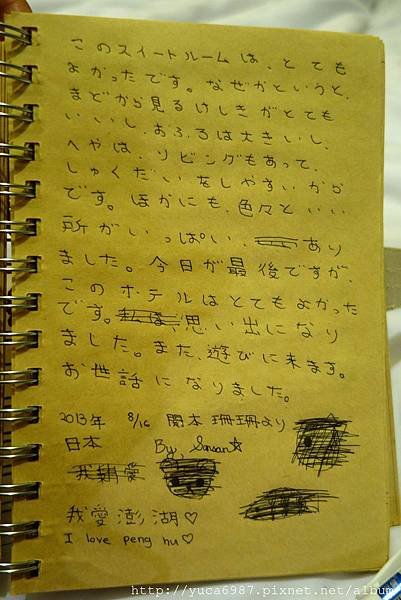 このスイートルームは、とても
よかったです。なぜかというと、
まどから見るけしきがとても
いいし、おふろは大きいし、
へやは、リビングもあって、
しゅくだいをしやすいから
です。ほかにも、色々といい
所がいっぱい、あり
ました。今日が最後ですが、
このホテルはとてもよかった
です。思い出になり
ました。また、遊びに来ます。
お世話になりました。
2013年 8/16 関本 珊珊より
日本 By, Sansan☆
我愛澎湖♡
I love peng hu♡
http://yuca6987.pixnet.net/album